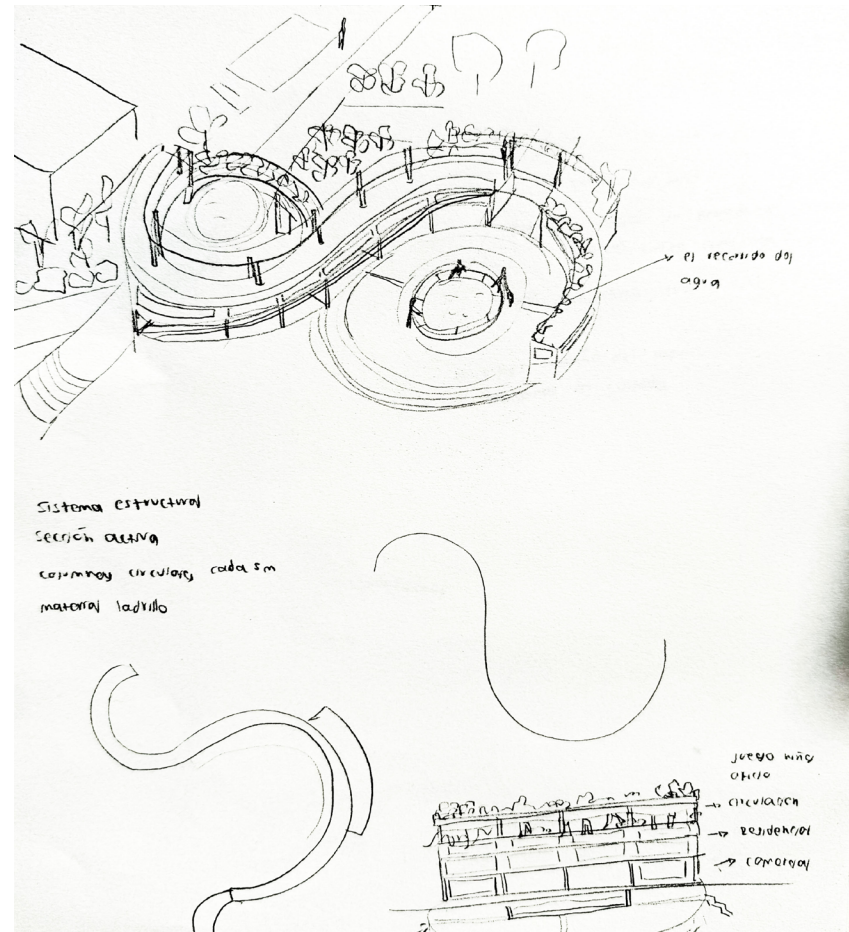 el recorrido del
agua
Sistema estructural
sección activa
columnas circulares cada 5m
material ladrillo
juego niños
circulacion
Residencial
comercial